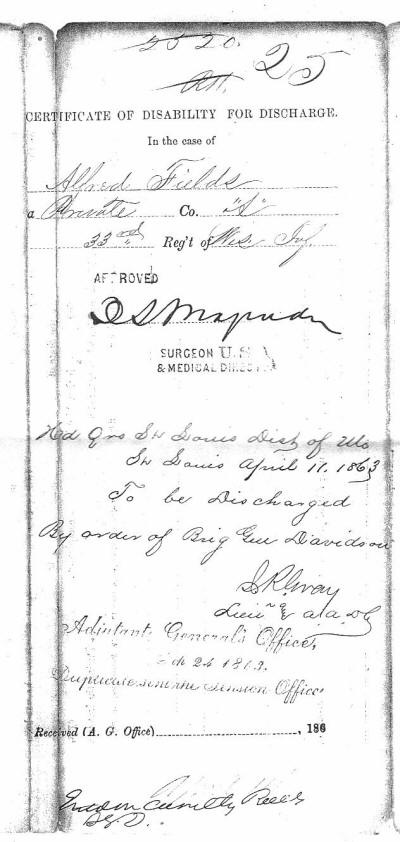 2520.
25
CERTIFICATE OF DISABILITY FOR DISCHARGE.
In the case of
Alfred Fields
a Private Co.
33rd Reg't of Wis Inf.
APPROVED
SURGEON U.S.A
& MEDICAL DIRECTOR
Hd Qrs St Louis Dist of Mo
St Louis April 17. 1863
To be Discharged
By order of Brig Gen Davidson
Adjutant General's Office,
24 1863.
Duplicate sent the Pension Office.
Received (A. G. Office) , 186